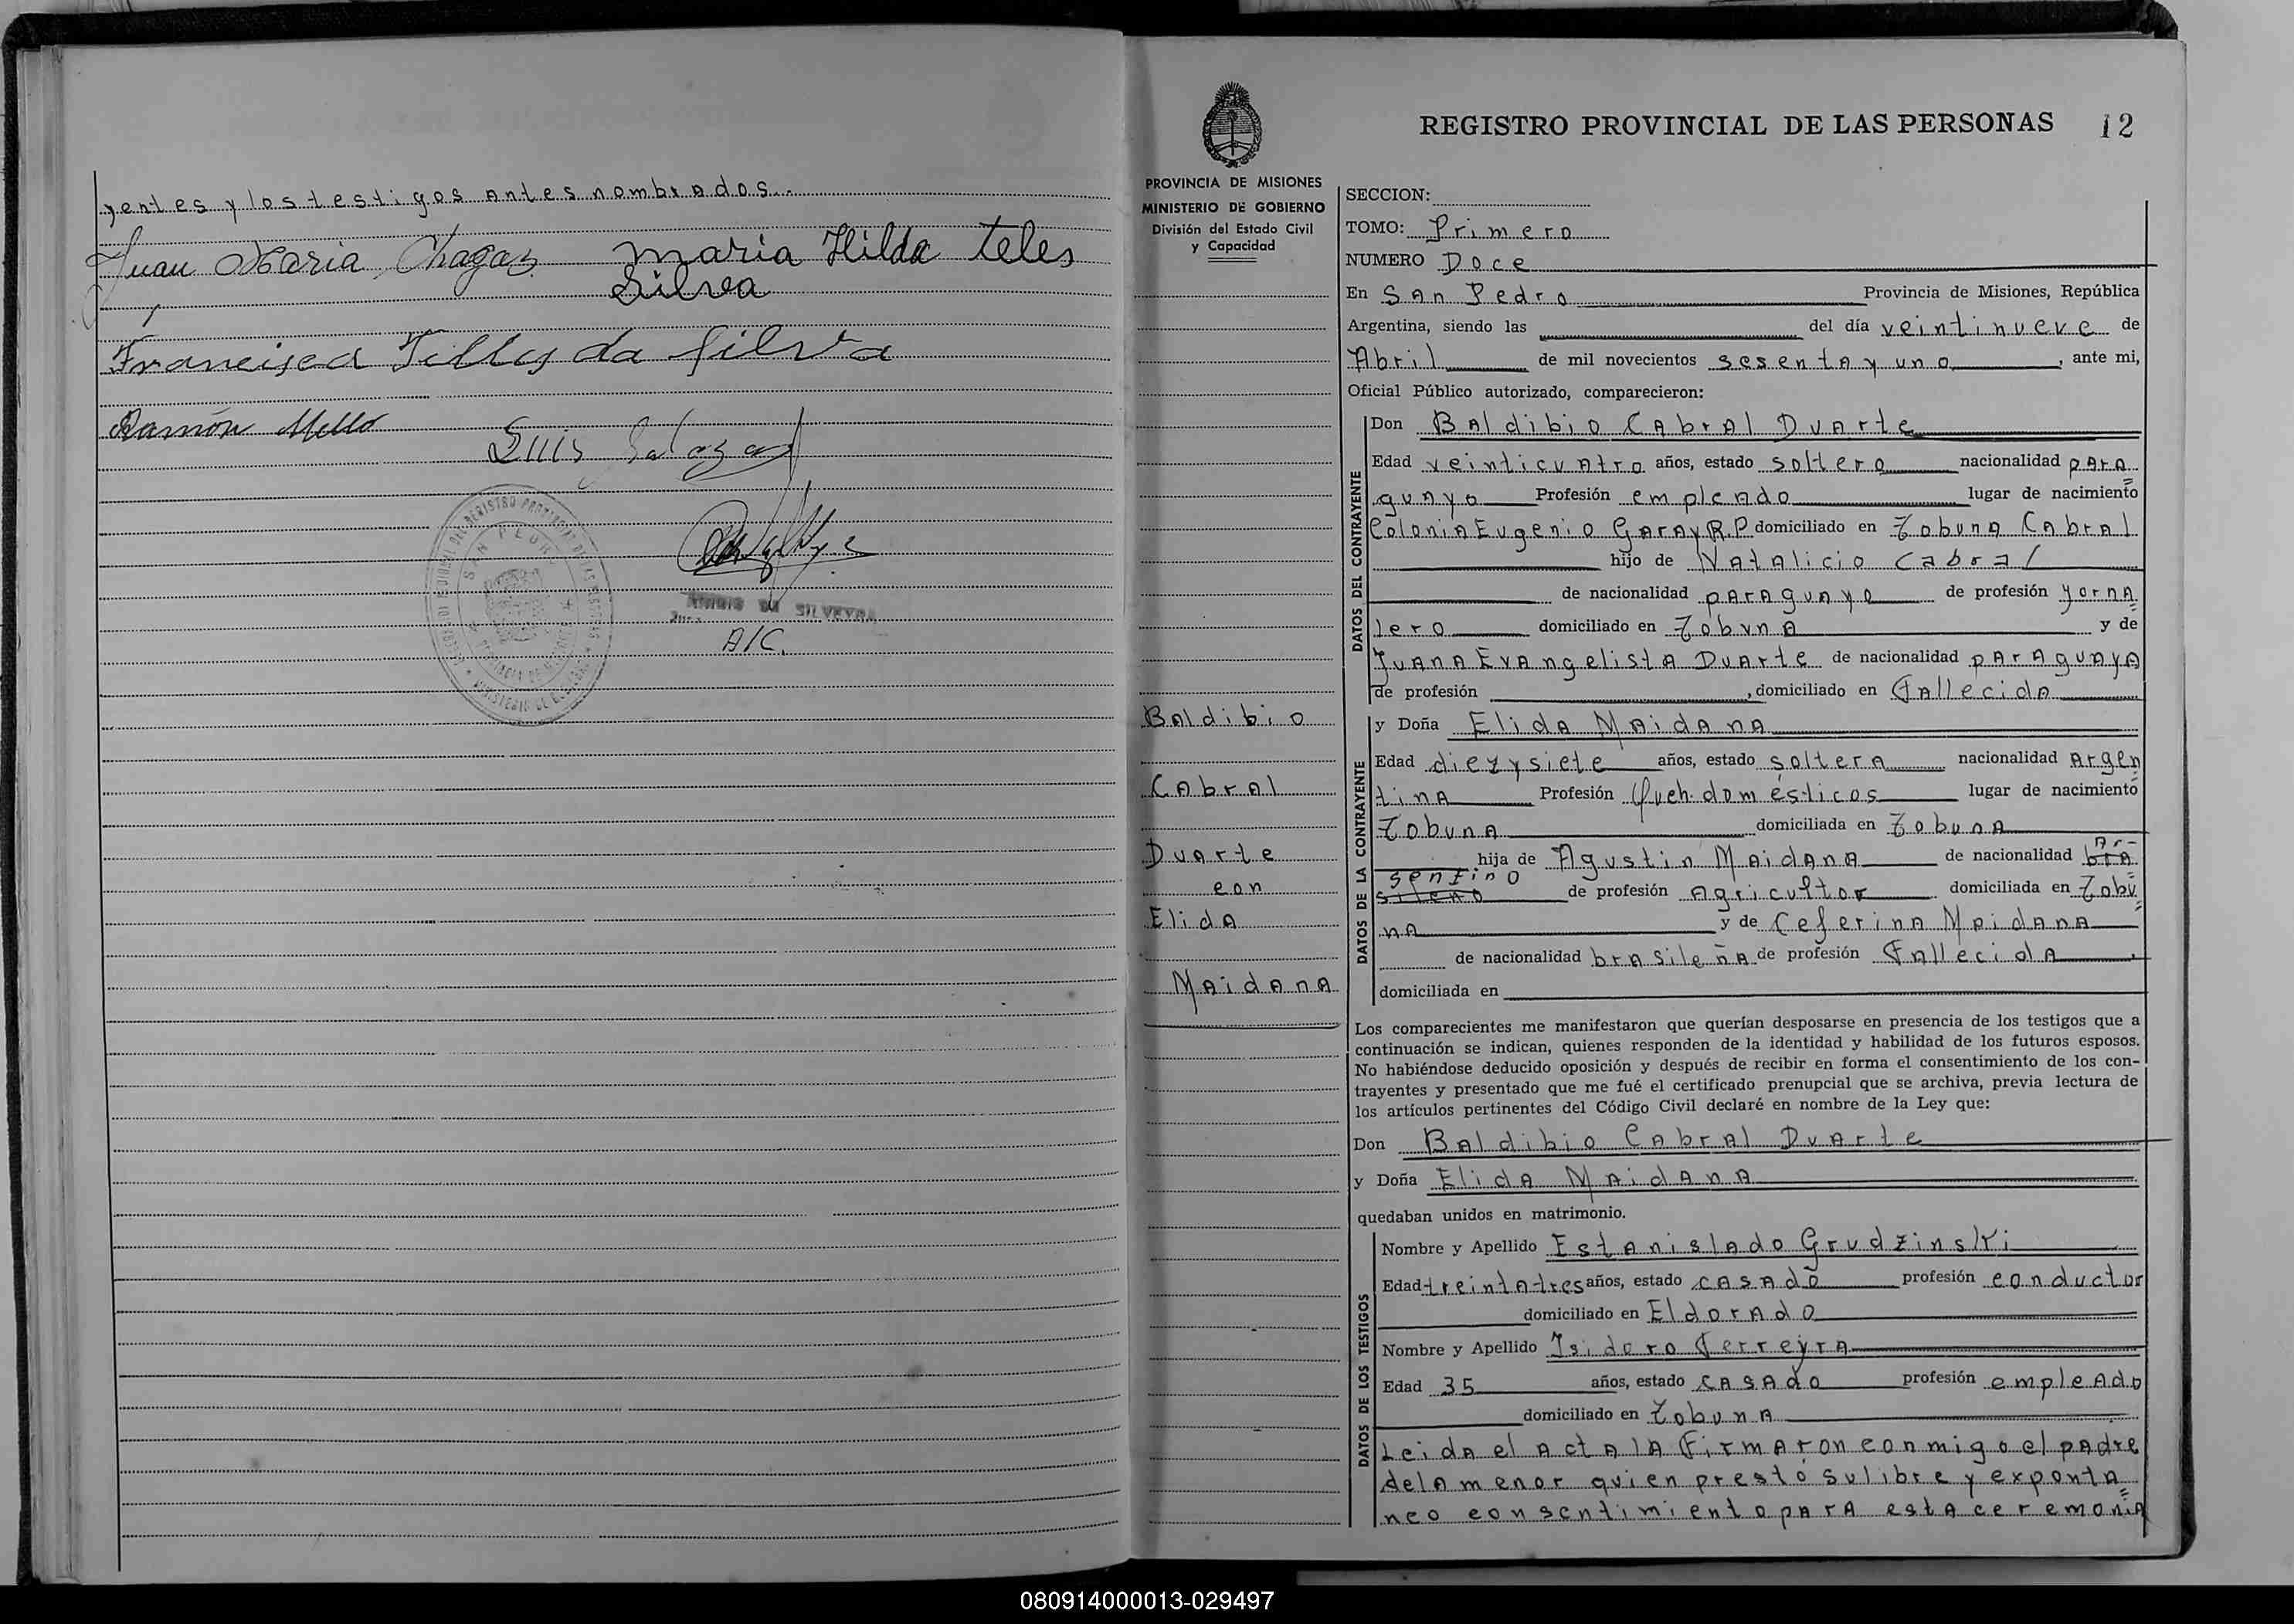 yentes y los testigos antes nombrados.-
Juan Maria Chagas Maria Hilda teles
Silvea
Francisca Tellys da Silva
Ramón Mello
Luis Salazar
SAN PEDRO
SILVEYRA
A/C.
REGISTRO PROVINCIAL DE LAS PERSONAS 12
PROVINCIA DE MISIONES
MINISTERIO DE GOBIERNO
División del Estado Civil
y Capacidad
Baldibio
Cabral
Duarte
con
Elida
Maidana
SECCION:
TOMO: Primero
NUMERO Doce
En San Pedro Provincia de Misiones, República
Argentina, siendo las del día veintinueve de
Abril de mil novecientos sesenta y uno, ante mi,
Oficial Público autorizado, comparecieron:
DATOS DEL CONTRAYENTE
Don Baldibio Cabral Duarte
Edad veinticuatro años, estado soltero nacionalidad para=
guayo Profesión empleado lugar de nacimiento
Colonia Eugenio Garay R.P domiciliado en Tobuna Cabral
hijo de Natalicio Cabral
de nacionalidad paraguayo de profesión yorna=
lero domiciliado en Tobuna y de
Juana Evangelista Duarte de nacionalidad paraguaya
de profesión , domiciliado en Fallecida
DATOS DE LA CONTRAYENTE
y Doña Elida Maidana
Edad diezysiete años, estado soltera nacionalidad Argen=
tina Profesión Queh. domésticos lugar de nacimiento
Tobuna domiciliada en Tobuna
hija de Agustin Maidana de nacionalidad bra= Ar-
sileño gentino de profesión Agricultor domiciliada en Tobu=
na y de Ceferina Maidana
de nacionalidad brasileña de profesión Fallecida,
domiciliada en
Los comparecientes me manifestaron que querían desposarse en presencia de los testigos que a
continuación se indican, quienes responden de la identidad y habilidad de los futuros esposos.
No habiéndose deducido oposición y después de recibir en forma el consentimiento de los con-
trayentes y presentado que me fué el certificado prenupcial que se archiva, previa lectura de
los artículos pertinentes del Código Civil declaré en nombre de la Ley que:
Don Baldibio Cabral Duarte
y Doña Elida Maidana
quedaban unidos en matrimonio.
DATOS DE LOS TESTIGOS
Nombre y Apellido Estanislado Grudzinski
Edad treintatres años, estado casado profesión conductor
domiciliado en Eldorado
Nombre y Apellido Isidoro Ferreyra
Edad 35 años, estado casado profesión empleado
domiciliado en Tobuna
Leida el acta la firmaron conmigo el padre
dela menor quien prestó su libre y exponta=
neo consentimiento para esta ceremonia
080914000013-029497